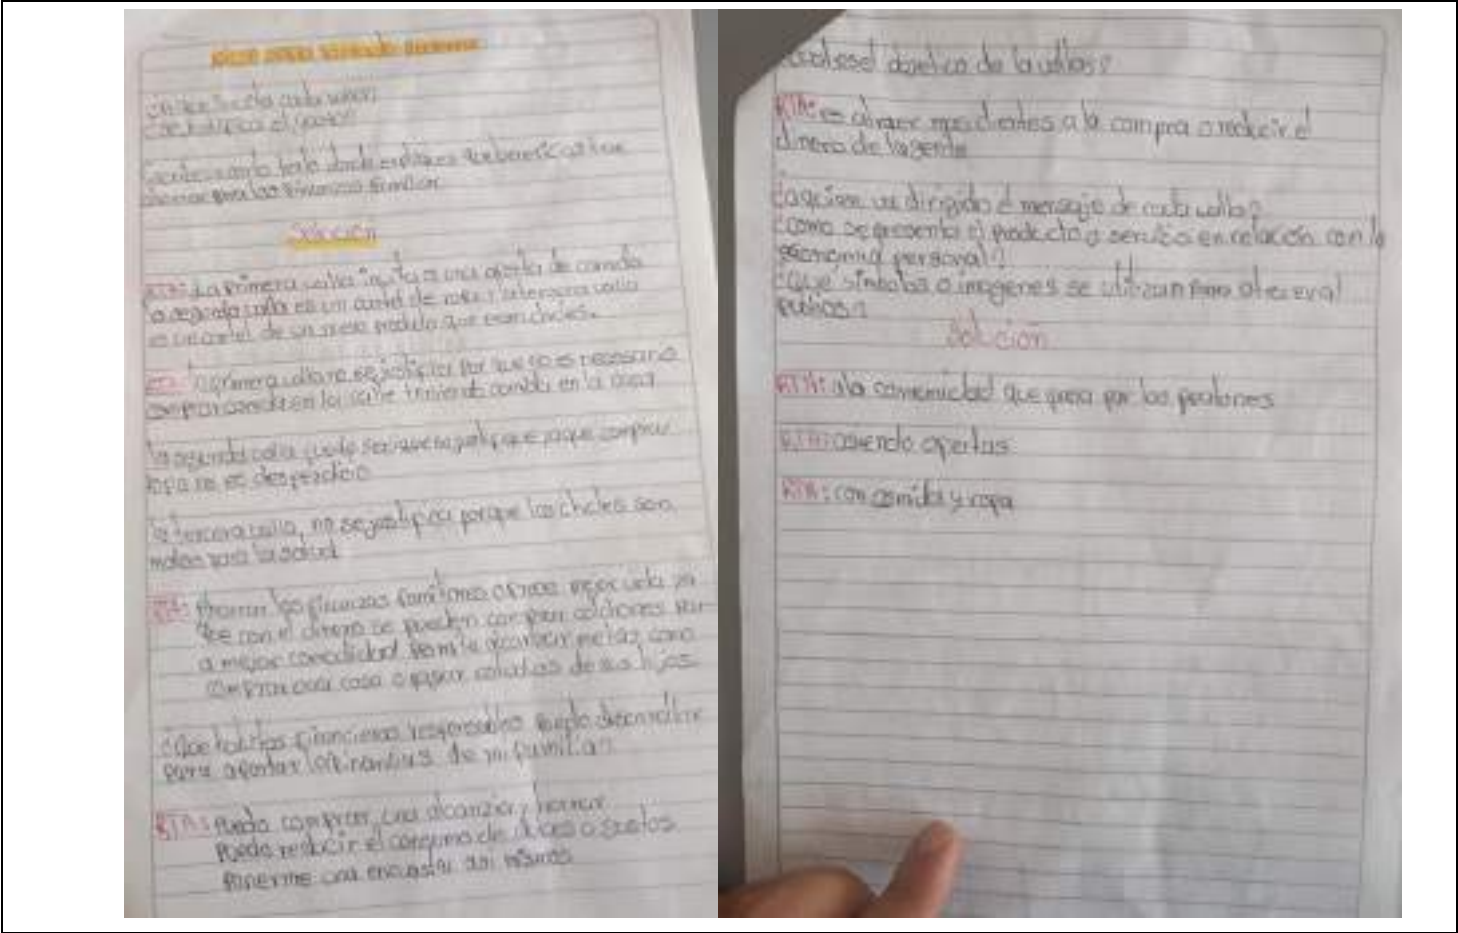 ¿A que invita cada valla?
¿se justifica el gasto?
las finanzas familiar
Solución
RTA: La primera valla invita a una oferta de comida
la segunda valla es un cartel de ropa y la tercera valla
es un cartel de un mega producto que es en chicles.
RTA: la primera valla no se justifica por que no es necesario
comprar comida en la calle teniendo comida en la casa
la segunda valla puede ser que se justifique ya que comprar
ropa no es desperdicio
la tercera valla, no se justifica porque los chicles son
malos para la salud
RTA: Ahorrar las finanzas familiares ofrece mejor vida ya
que con el dinero se pueden comprar colchones par
a mejor comodidad permite alcanzar metas como
comprar una casa o pagar estudios de sus hijos
¿Que habitos financieros responsables puedo desarrollar
para aportar las finanzas de mi familia?
RTA: Puedo comprar una alcanzia y horrar
Puedo reducir el consumo de dulces o gustos
Ponerme una encuesta ami misma
¿cual es el objetivo de la vallas?
RTA: es atraer mas clientes a la compra o reducir el
dinero de la gente
¿aquien va dirigido el mensaje de cada valla?
¿como se presenta el producto o servicio en relación con la
economia personal?
¿que simbolos o imagenes se utilizan para atraer al
publico?
Solución
RTA: ala comunidad que pasa por los peatones
RTA: asiendo ofertas
RTA: con comida y ropa